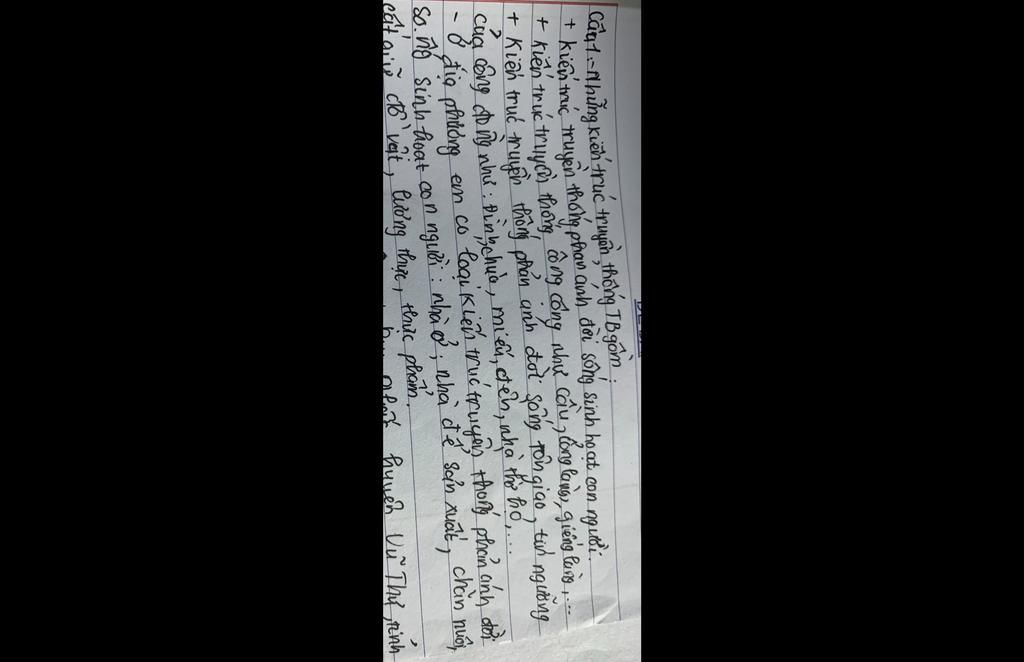 Câu1:-Những kiến trúc truyền thống TB gồm:
+ kiến trúc truyền thống phản ánh đời sống sinh hoạt con người.
+ kiến trúc truyền thống công cộng như cầu, cổng làng, giếng làng,...
+ kiến trúc truyền thống phản ánh đời sống tôn giáo, tín ngưỡng
của cộng đồng như: đình, chùa, miếu, đền, nhà thờ họ,...
- ở địa phương em có loại kiến trúc truyền thống phản ánh đời
sống sinh hoạt con người: nhà ở; nhà để sản xuất, chăn nuôi,
cất giữ đồ vật, lương thực, thực phẩm.
huyện Vũ Thư, tỉnh